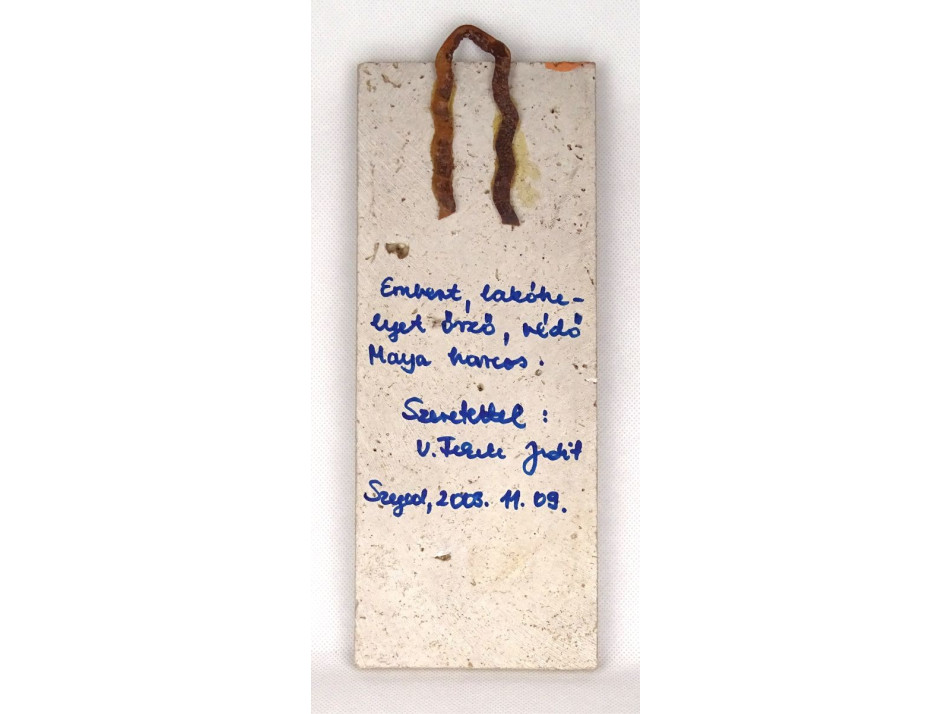 Embert, lakóhe-
lyet őrző, védő
Maya harcos.
Szeretettel :
V. Fekete Judit
Szeged, 2008. 11. 09.